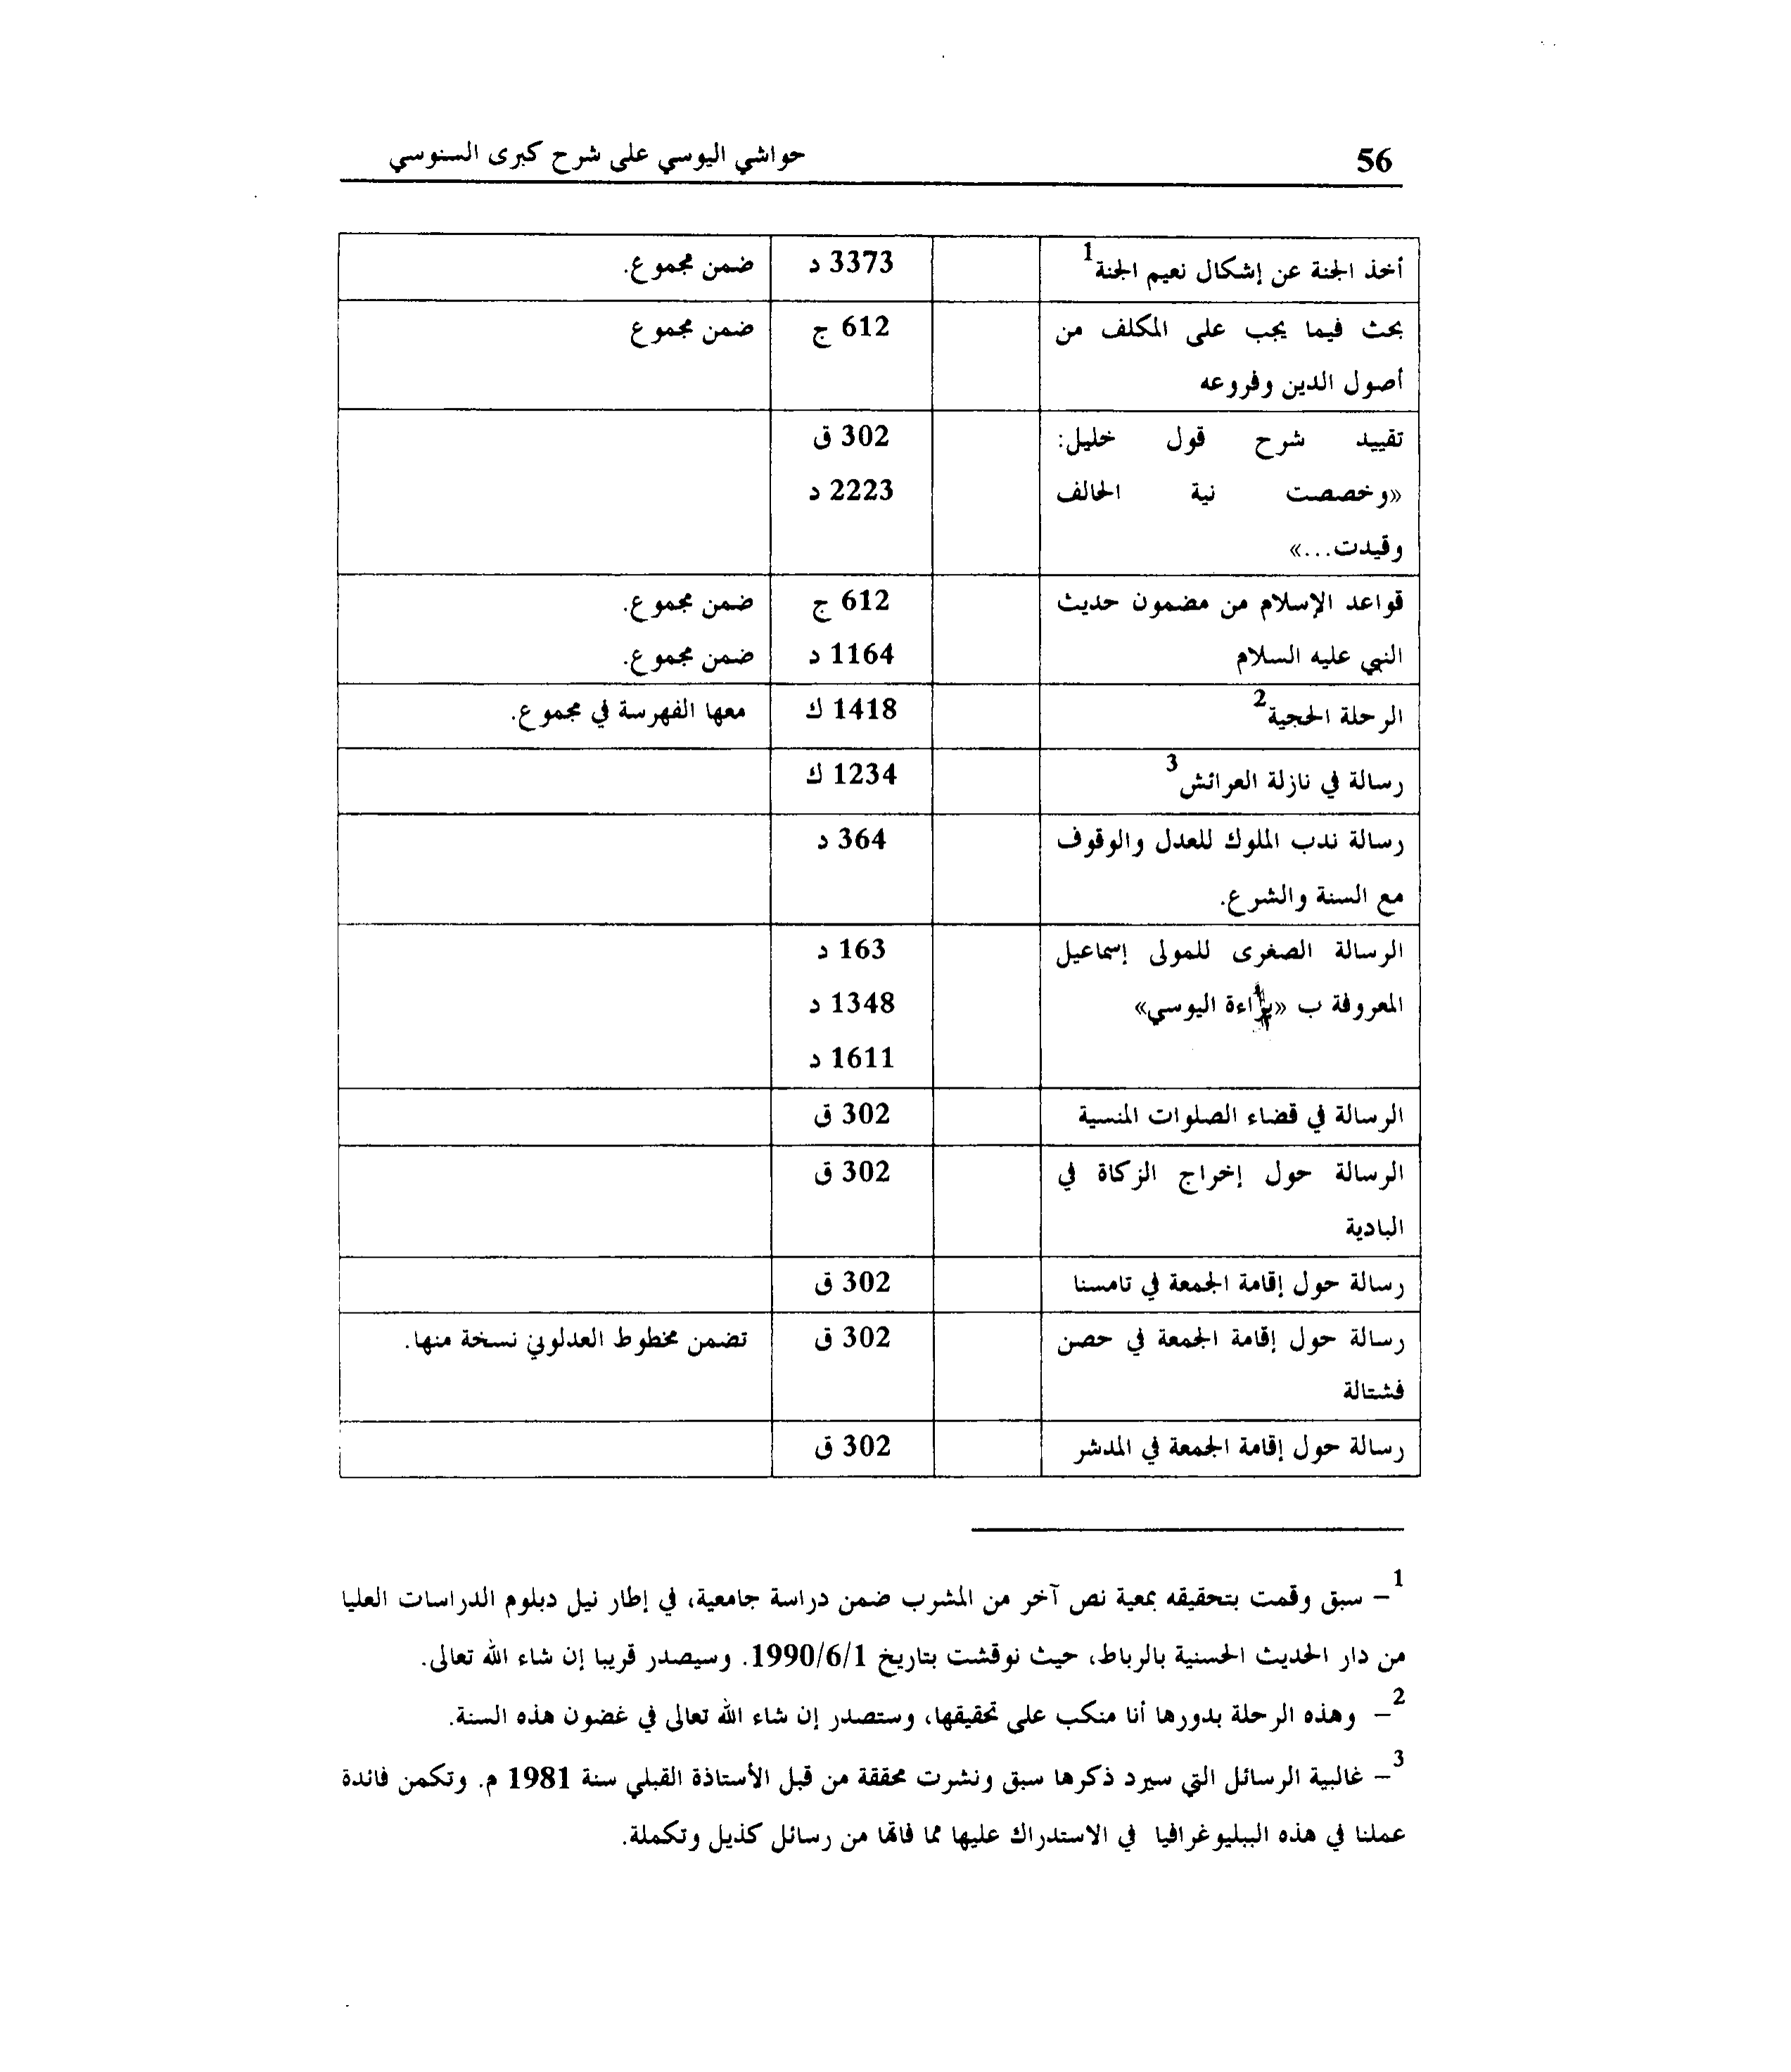 56 حواشي اليوسي على شرح كبرى السنوسي
أخذ الجنة عن إشكال نعيم الجنة1 3373 د ضمن مجموع.
بحث فيما يجب على المكلف من 612 ج ضمن مجموع
أصول الدين وفروعه
تقييد شرح قول خليل: 302 ق
«وخصصت نية الحالف 2223 د
وقيدت...»
قواعد الإسلام من مضمون حديث 612 ج ضمن مجموع.
النبي عليه السلام 1164 د ضمن مجموع.
الرحلة الحجية2 1418 ك معها الفهرسة في مجموع.
رسالة في نازلة العرائش3 1234 ك
رسالة ندب الملوك للعدل والوقوف 364 د
مع السنة والشرع.
الرسالة الصغرى للمولى إسماعيل 163 د
المعروفة ب «براءة اليوسي» 1348 د
1611 د
الرسالة في قضاء الصلوات المنسية 302 ق
الرسالة حول إخراج الزكاة في 302 ق
البادية
رسالة حول إقامة الجمعة في تامسنا 302 ق
رسالة حول إقامة الجمعة في حصن 302 ق تضمن مخطوط العدلوني نسخة منها.
فشتالة
رسالة حول إقامة الجمعة في المدشر 302 ق
1– سبق وقمت بتحقيقه بمعية نص آخر من المشرب ضمن دراسة جامعية، في إطار نيل دبلوم الدراسات العليا
من دار الحديث الحسنية بالرباط، حيث نوقشت بتاريخ 1990/6/1. وسيصدر قريبا إن شاء الله تعالى.
2– وهذه الرحلة بدورها أنا منكب على تحقيقها، وستصدر إن شاء الله تعالى في غضون هذه السنة.
3– غالبية الرسائل التي سيرد ذكرها سبق ونشرت محققة من قبل الأستاذة القبلي سنة 1981 م. وتكمن فائدة
عملنا في هذه الببليوغرافيا في الاستدراك عليها مما فاتها من رسائل كذيل وتكملة.